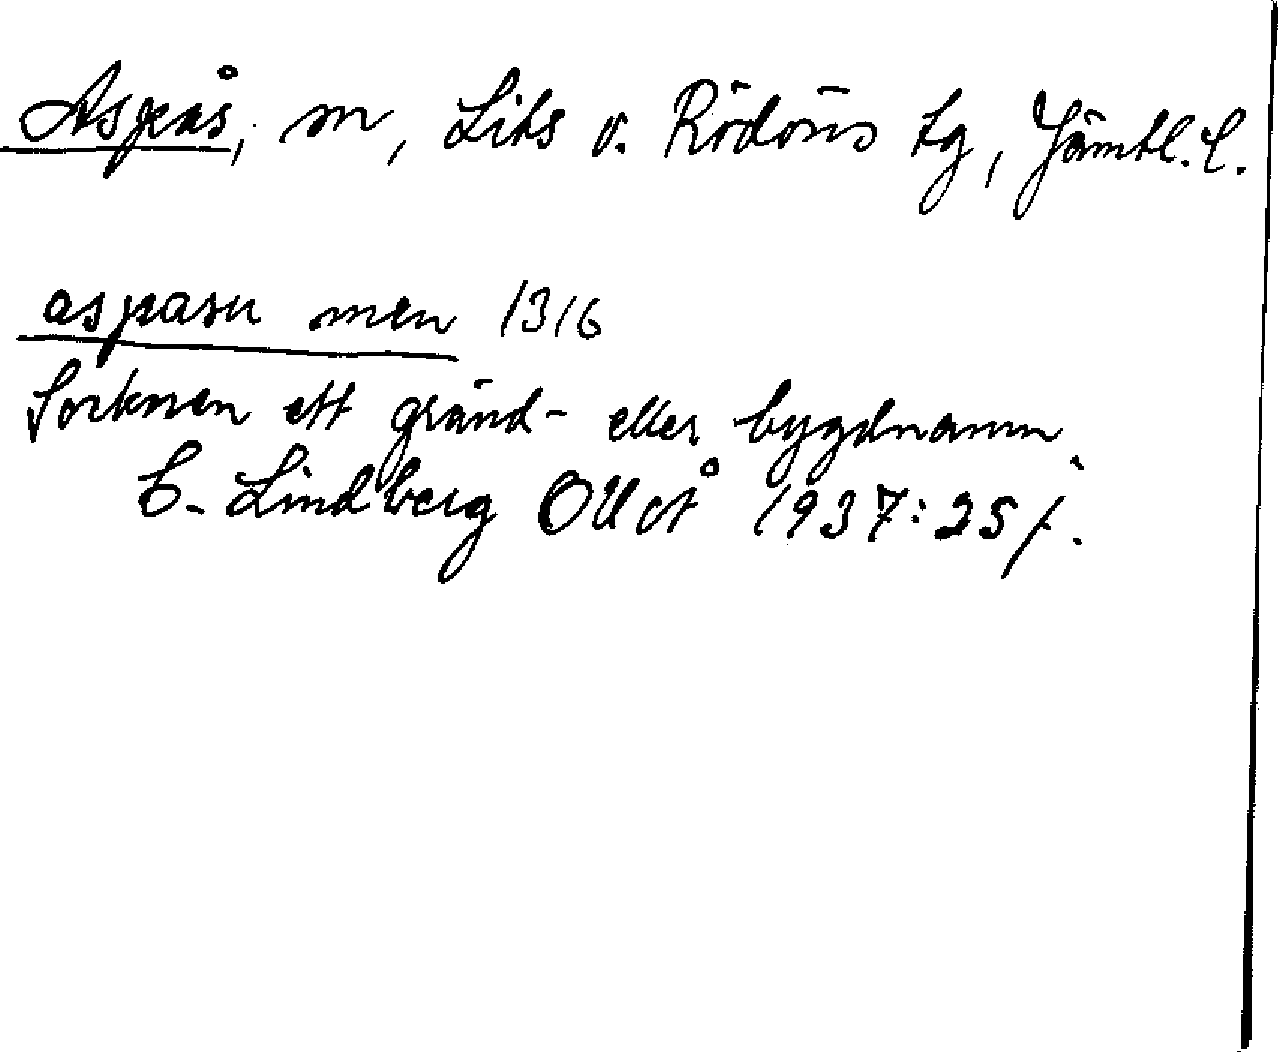 Aspås, sn, Lits o. Rödöns tg, Jämtl. l.
aspasu men 1316
Socknen ett gränd- eller bygdnamn.
C. Lindberg OUoÅ 1937:25 f.